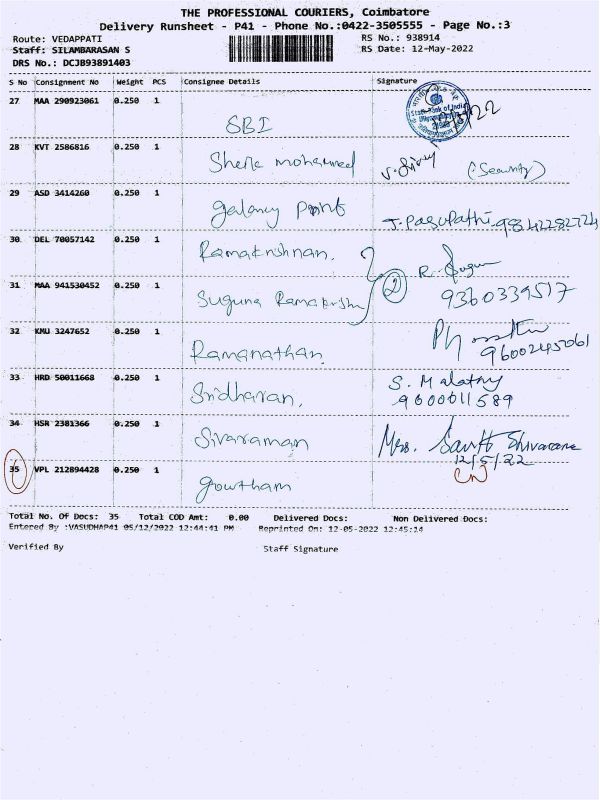 THE PROFESSIONAL COURIERS, Coimbatore
Delivery Runsheet - P41 - Phone No.:0422-3505555 - Page No.:3
Route: VEDAPPATI RS No.: 938914
Staff: SILAMBARASAN S RS Date: 12-May-2022
DRS No.: DCJB93891403
S No Consignment No Weight PCS Consignee Details Signature
27 MAA 290923061 0.250 1 SBI
28 KVT 2586816 0.250 1 Sherle mohammed (Security)
29 ASD 3414260 0.250 1 galaxy point J. Pasupathi 9842282724
30 DEL 70057142 0.250 1 Ramakrishnan. R.
31 MAA 941530452 0.250 1 Suguna Ramakrishn 2 9360339517
32 KMU 3247652 0.250 1 Ramanathan. 9600245061
33 HRD 50011668 0.250 1 Sridharan. S. Malathy
9600011589
34 HSR 2381366 0.250 1 Sivaraman Mrs.
12/5/22
35 VPL 212894428 0.250 1 gowtham CN
Total No. Of Docs: 35 Total COD Amt: 0.00 Delivered Docs: Non Delivered Docs:
Entered By :VASUDHAP41 05/12/2022 12:44:41 PM Reprinted On: 12-05-2022 12:45:14
Verified By Staff Signature